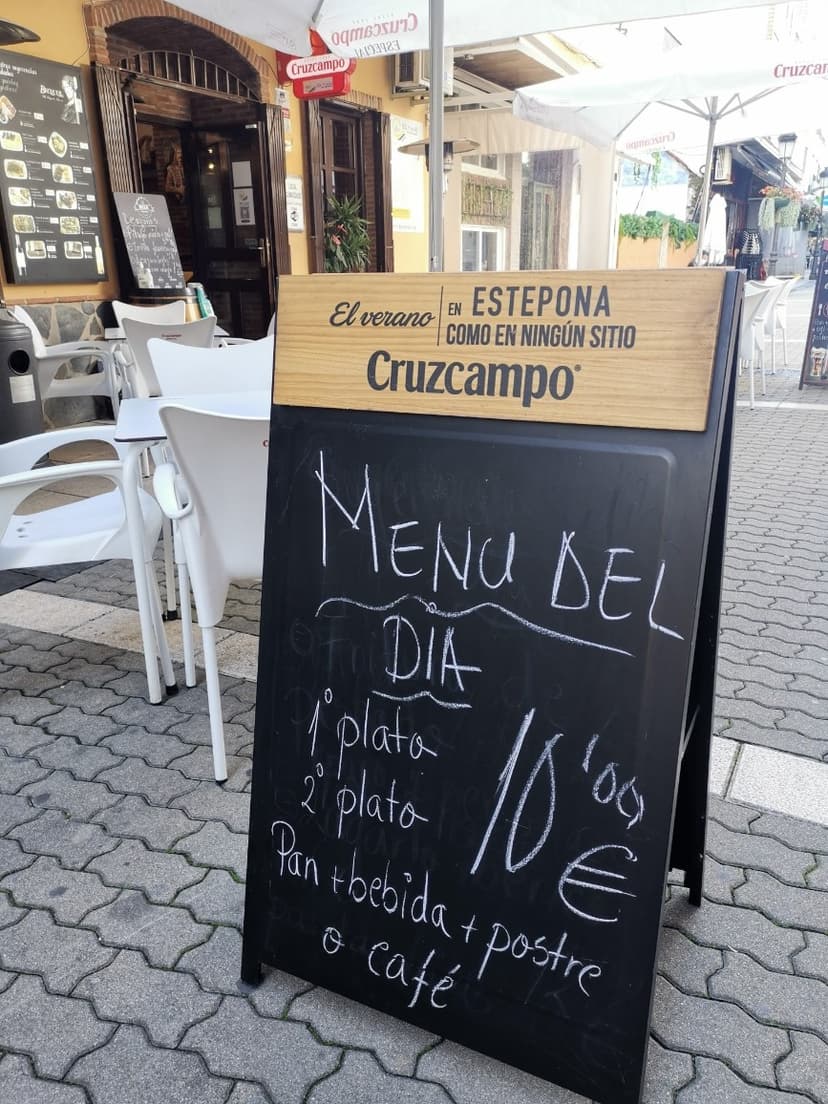 Cruzcampo
ESPECIAL
Cruzcampo
Cruzcampo
El verano
EN ESTEPONA
COMO EN NINGÚN SITIO
Cruzcampo
MENU DEL
DIA
1º plato
2º plato
10'00
€
Pan + bebida + postre
o café